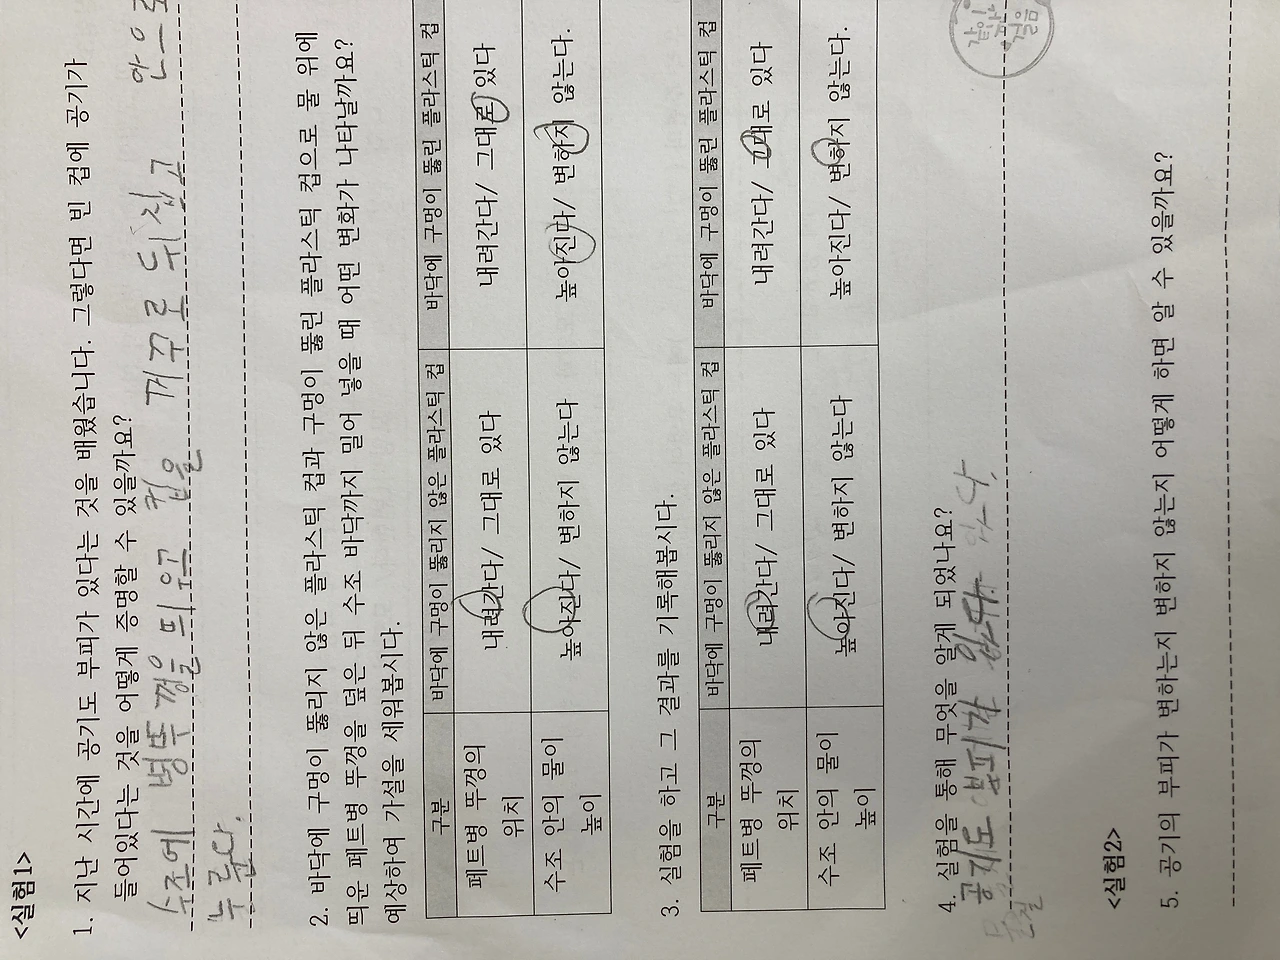 <실험1>
1. 지난 시간에 공기도 부피가 있다는 것을 배웠습니다. 그렇다면 빈 컵에 공기가
들어있다는 것을 어떻게 증명할 수 있을까요?
수조에 병뚜껑을 띄우고 컵을 꺼꾸로 뒤집고 안으로
누른다.
2. 바닥에 구멍이 뚫리지 않은 플라스틱 컵과 구멍이 뚫린 플라스틱 컵으로 물 위에
띄운 페트병 뚜껑을 덮은 뒤 수조 바닥까지 밀어 넣을 때 어떤 변화가 나타날까요?
예상하여 가설을 세워봅시다.
구분 바닥에 구멍이 뚫리지 않은 플라스틱 컵 바닥에 구멍이 뚫린 플라스틱 컵
페트병 뚜껑의 위치 내려간다/ 그대로 있다 내려간다/ 그대로 있다
수조 안의 물이 높이 높아진다/ 변하지 않는다 높아진다/ 변하지 않는다.
3. 실험을 하고 그 결과를 기록해봅시다.
구분 바닥에 구멍이 뚫리지 않은 플라스틱 컵 바닥에 구멍이 뚫린 플라스틱 컵
페트병 뚜껑의 위치 내려간다/ 그대로 있다 내려간다/ 그대로 있다
수조 안의 물이 높이 높아진다/ 변하지 않는다 높아진다/ 변하지 않는다.
4. 실험을 통해 무엇을 알게 되었나요?
공기도 부피가 있다.
<실험2>
5. 공기의 부피가 변하는지 변하지 않는지 어떻게 하면 알 수 있을까요?